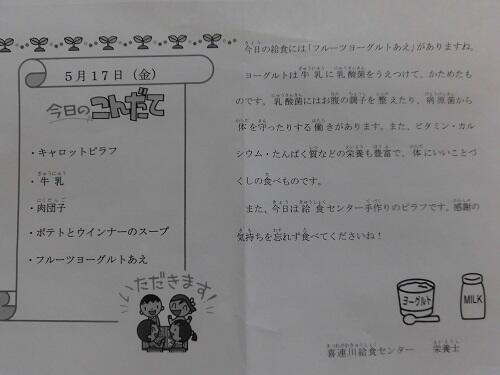 5月17日（金）
今日のこんだて
・キャロットピラフ
・牛乳
・肉団子
・ポテトとウインナーのスープ
・フルーツヨーグルトあえ
いただきます！
今日の給食には「フルーツヨーグルトあえ」がありますね。
ヨーグルトは牛乳に乳酸菌をうえつけて、かためたも
のです。乳酸菌にはお腹の調子を整えたり、病原菌から
体を守ったりする働きがあります。また、ビタミン・カル
シウム・たんぱく質などの栄養も豊富で、体にいいことづ
くしの食べものです。
また、今日は給食センター手作りのピラフです。感謝の
気持ちを忘れず食べてくださいね！
ヨーグルト
MILK
喜連川給食センター　栄養士